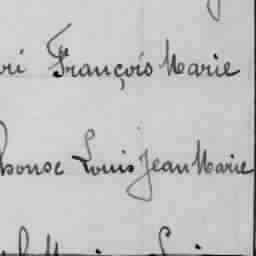 ri François Marie
honse Louis Jean Marie